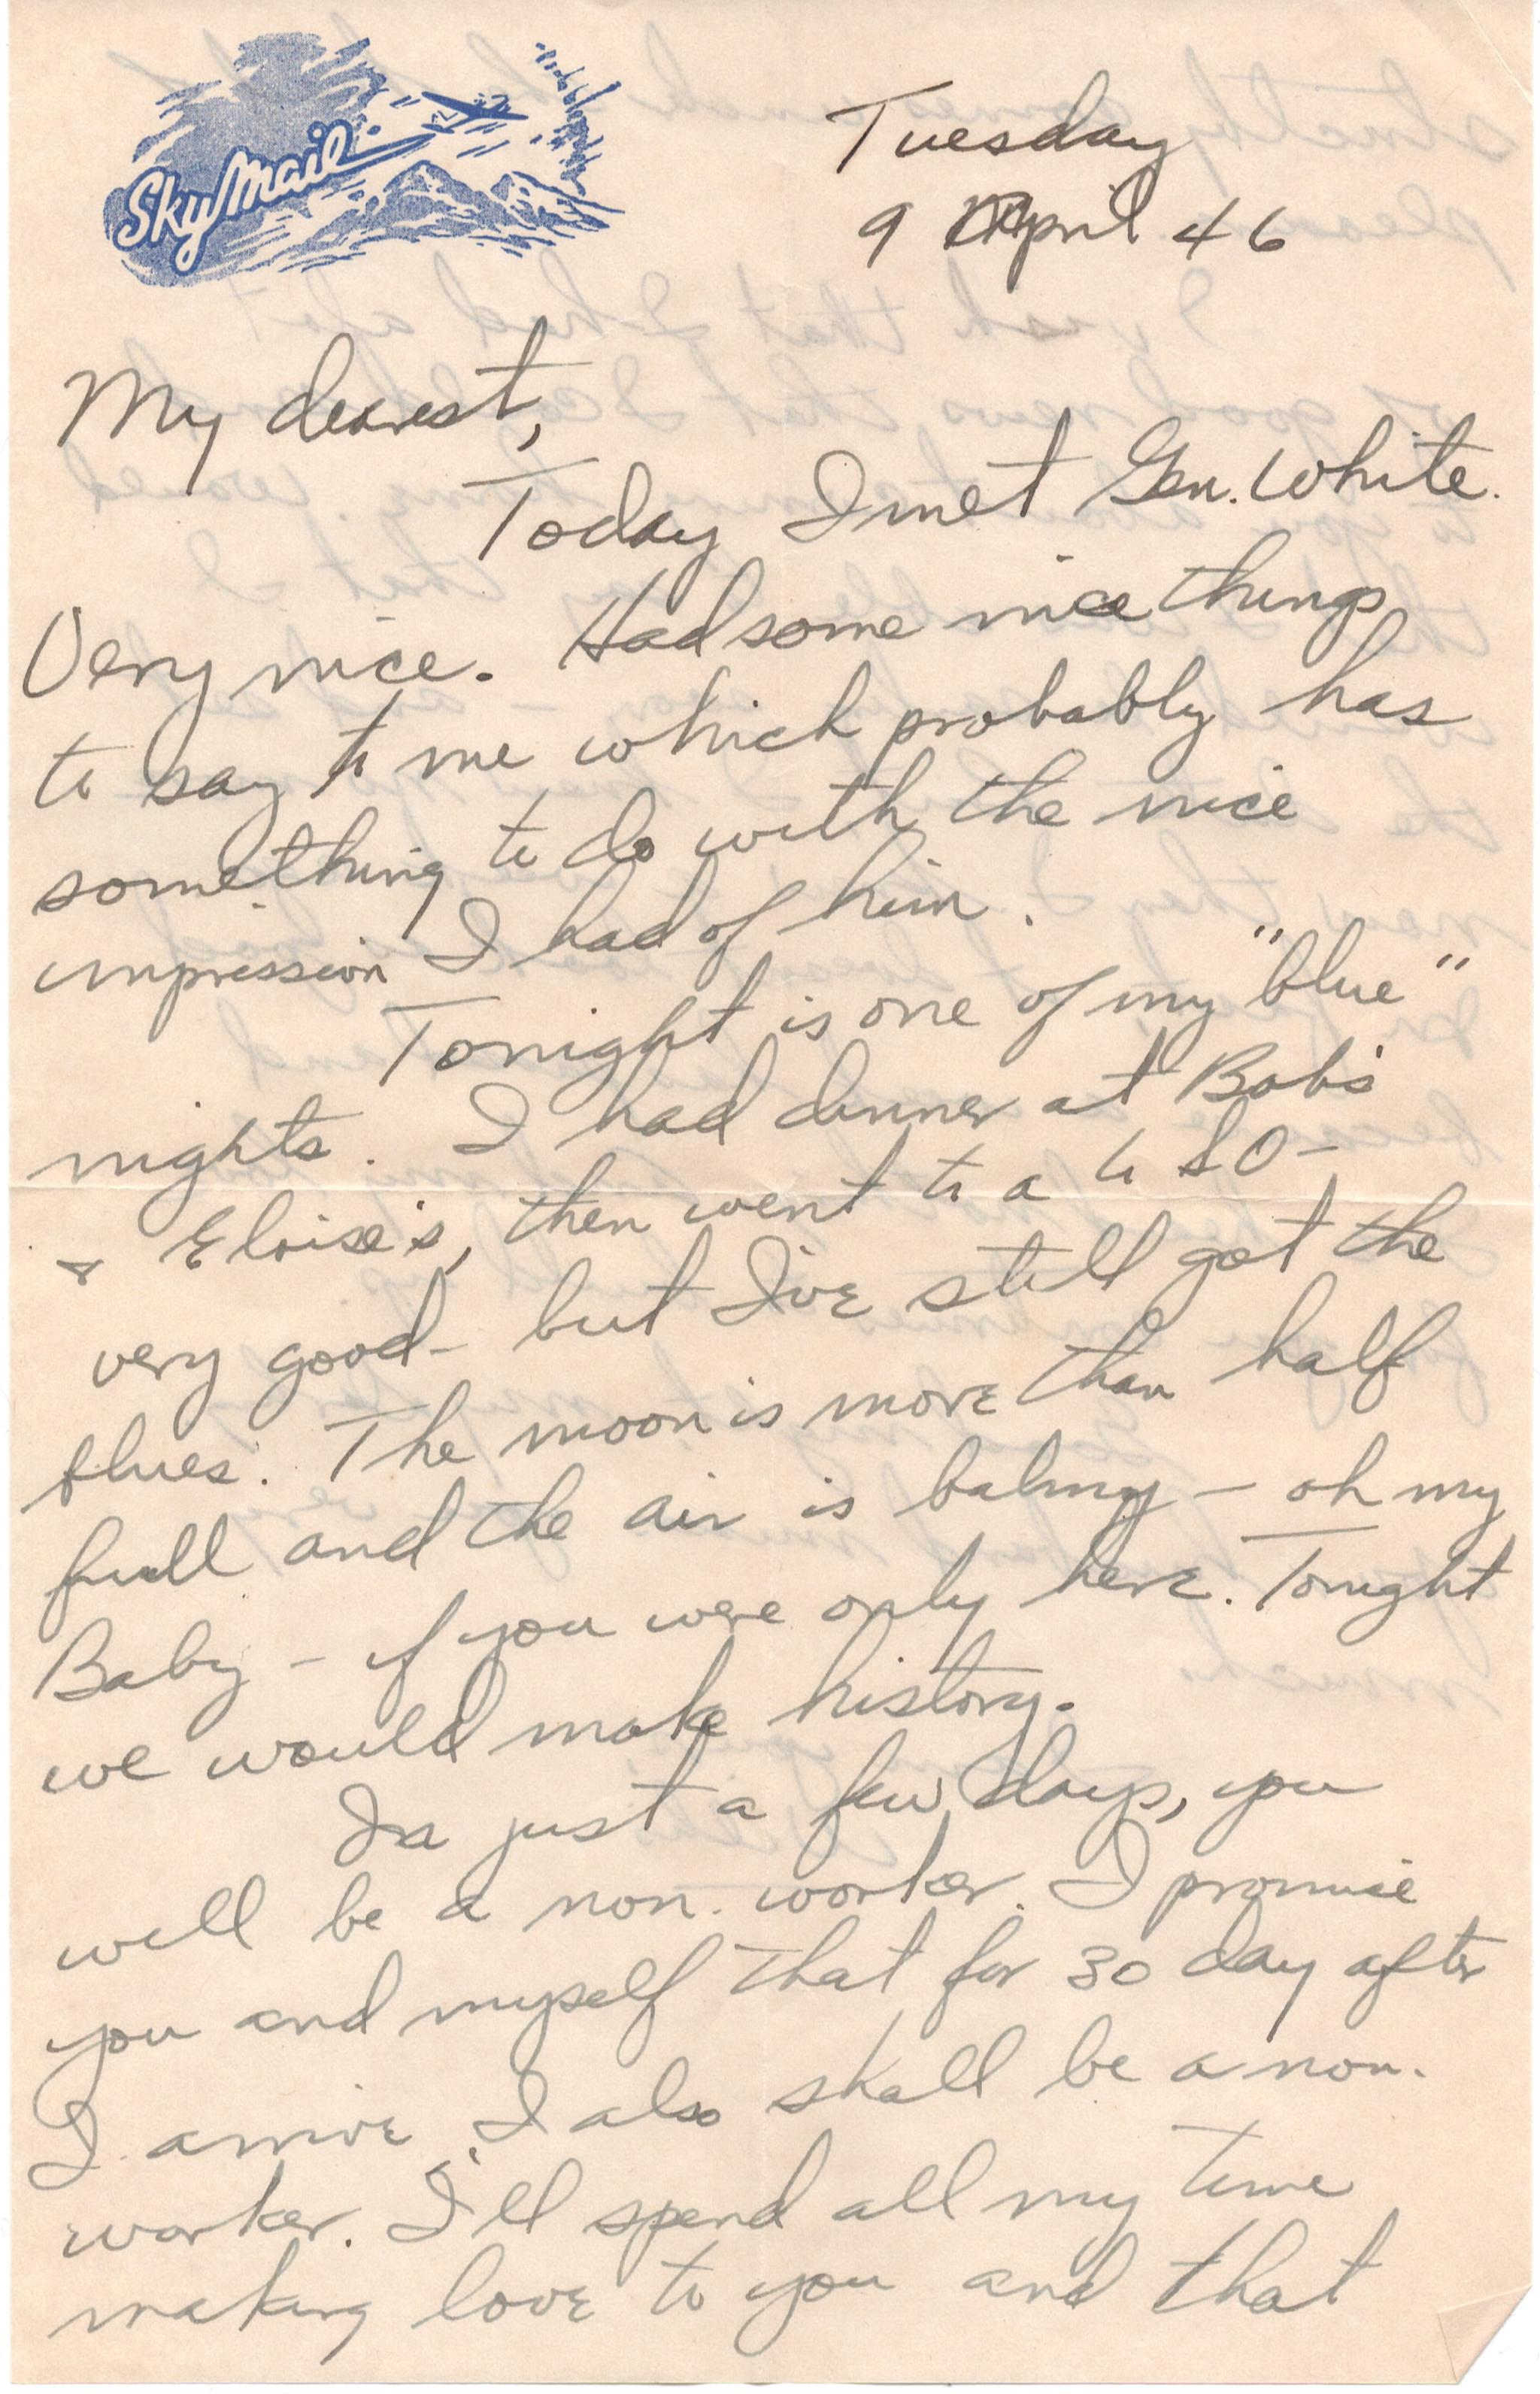 SkyMail
Tuesday
9 April 46
My dearest,
Today I met Gen. White.
Very nice. Had some nice things
to say to me which probably has
something to do with the nice
impression I had of him.
Tonight is one of my "blue"
nights. I had dinner at Bob's
& Eloise's, then went to a U S O -
very good - but I've still got the
blues. The moon is more than half
full and the air is balmy - oh my
Baby - if you were only here. Tonight
we would make history.
In just a few days, you
will be a non-worker. I promise
you and myself that for 30 day after
I arrive, I also shall be a non-
worker. I'll spend all my time
making love to you and that